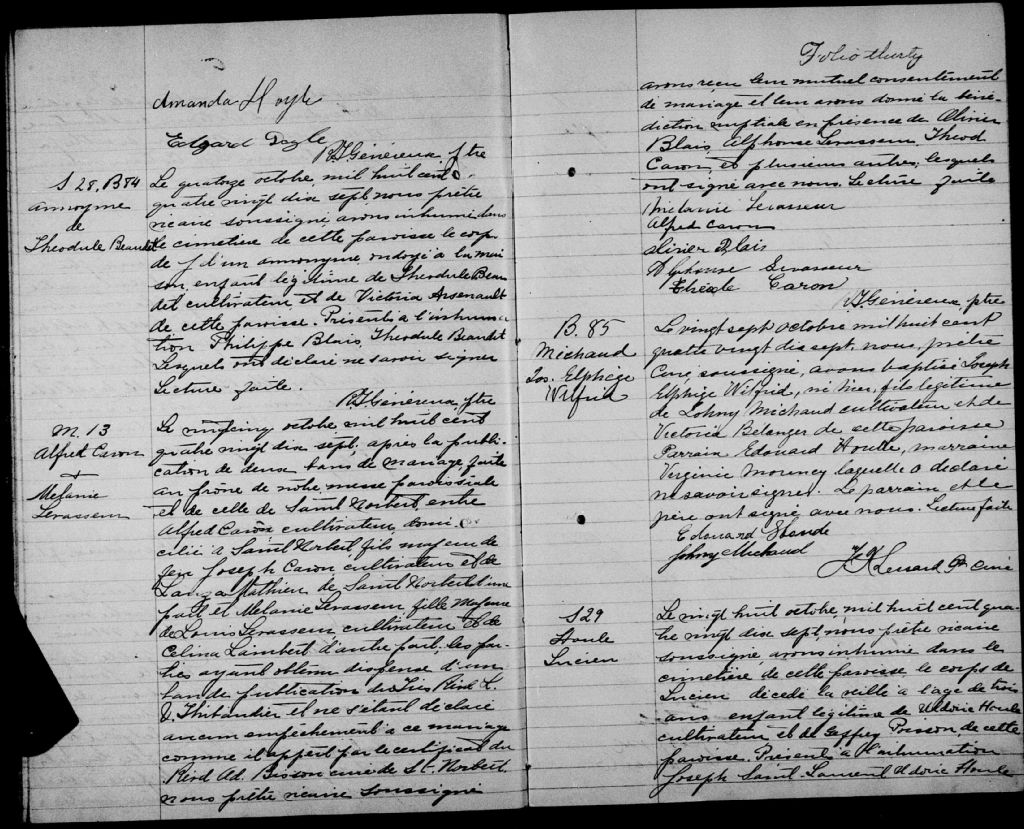 Amanda Hoyle
Edgard Dayle
Généreux ptre
S 28. B84
Annonyme
de
Théodule Beaudet
Le quatorze octobre mil huit cent
quatre vingt dix sept nous prêtre
vicaire soussigné avons inhumé dans
le cimetière de cette paroisse le corp
de d'un annonyme ondoyé à la mai
son, enfant légitime de Théodule Beau
det cultivateur et de Victoria Arsenault
de cette paroisse. Présents à l'inhuma
tion Philippe Blais, Théodule Beaudet
Lesquels ont déclaré ne savoir signer
Lecture faite.
Généreux ptre
M. 13
Alfred Caron
+
Mélanie
Levasseur
Le vingt cinq octobre mil huit cent
quatre vingt dix sept, après la publi-
cation de deux bans de mariage faite
au prône de notre messe paroissiale
et de celle de Saint Norbert, entre
Alfred Caron cultivateur, domi
cilié à Saint Norbert, fils majeur de
feu Joseph Caron cultivateur et de
Mathieu de Saint Norbert d'une
part et Mélanie Levasseur, fille majeure
de Louis Levasseur cultivateur et de
Celina Lambert d'autre part; les par-
ties ayant obtenu dispense d'un
ban de publication du Très Révd
Thibaudier et ne s'étant déclaré
aucun empêchement à ce mariage
comme il appert par le certificat du
Révd Ad. Buisson curé de St. Norbert
nous prêtre vicaire soussigné
Folio thirty
avons reçu leur mutuel consentement
de mariage et leur avons donné la béné-
diction nuptiale en présence de Olivier
Blais, Alphonse Levasseur, Théod
Caron, et plusieurs autres, lesquels
ont signé avec nous. Lecture faite
Mélanie Levasseur
Alfred Caron
Olivier Blais
Alphonse Levasseur
Caron
Généreux, ptre
B. 85
Michaud
Jos. Elphège
Wilfrid
Le vingt sept octobre mil huit cent
quatre vingt dix sept, nous, prêtre
Curé, soussigné, avons baptisé Joseph
Elphège Wilfrid, né hier, fils légitime
de Johny Michaud cultivateur et de
Victoria Bélanger de cette paroisse
Parrain Edouard Houle, marraine
Virginie laquelle a déclaré
ne savoir signer. Le parrain et le
père ont signé avec nous. Lecture faite
Edouard Houde
Johny Michaud
Curé
S 29
Houle
Lucien
Le vingt huit octobre, mil huit cent qua-
tre vingt dix sept, nous prêtre vicaire
soussigné, avons inhumé dans le
cimetière de cette paroisse le corps de
Lucien décédé la veille à l'age de trois
ans enfant légitime de Uldoric Houle
cultivateur et de Poisson de cette
paroisse. Présents à l'inhumation
Joseph Saint-Laurent Uldoric Houle